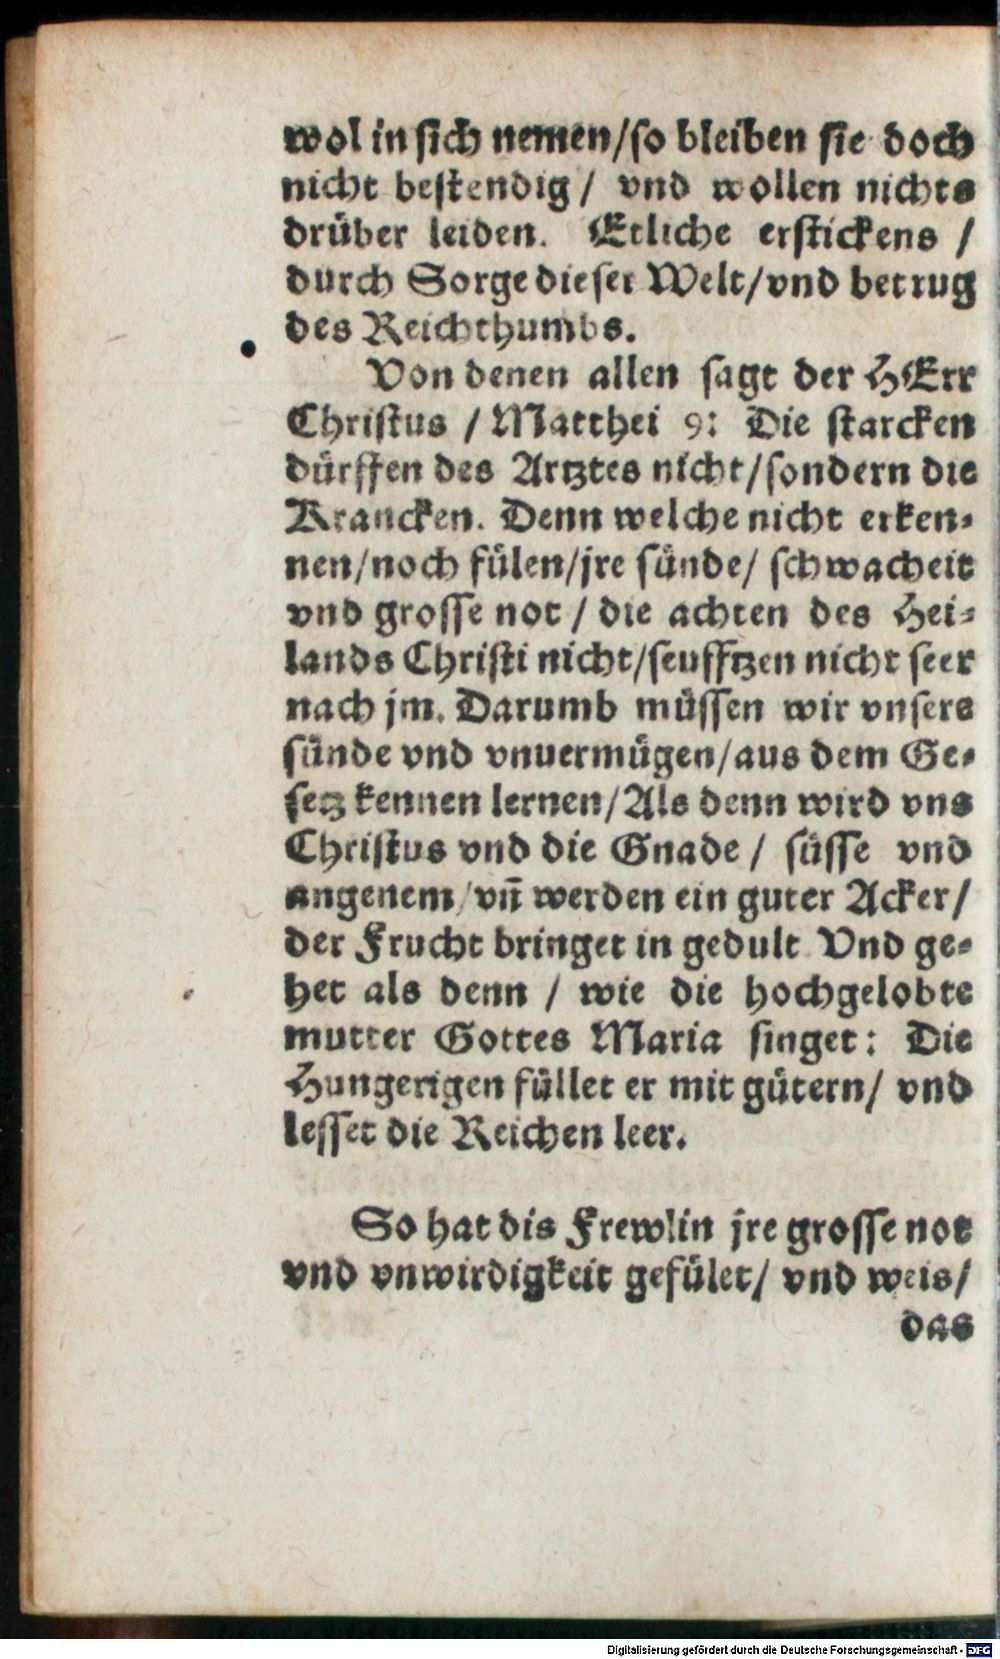 wol in sich nemen/so bleiben sie doch
nicht bestendig / vnd wollen nichts
drüber leiden. Etliche ersticken​s /
durch Sorge dieser Welt/vnd betrug
des Reichthumbs.
Von denen allen sagt der HErr
Christus / Matthei 9: Die starcken
dürffen des Artztes nicht/sondern die
Krancken. Denn welche nicht erken⸗
nen/noch fülen/jre sünde/ schwacheit
vnd grosse not / die achten des Hei⸗
lands Christi nicht/seufftzen nicht seer
nach jm. Darumb müssen wir vnsere
sünde vnd vnuermügen/aus dem Ge⸗
setz kennen lernen/Als denn wird vns
Christus vnd die Gnade / süsse vnd
angenem/vñ werden ein guter Acker/
der Frucht bringet in gedult Vnd ge⸗
het als denn / wie die hochgelobte
mutter Gottes Maria singet: Die
Hungerigen füllet er mit gütern/ vnd
lesset die Reichen leer.
So hat dis Frewlin jre grosse not
vnd vnwirdigkeit gefület/ vnd weis/
das
Digitalisierung gefördert durch die Deutsche Forschungsgemeinschaft - DFG